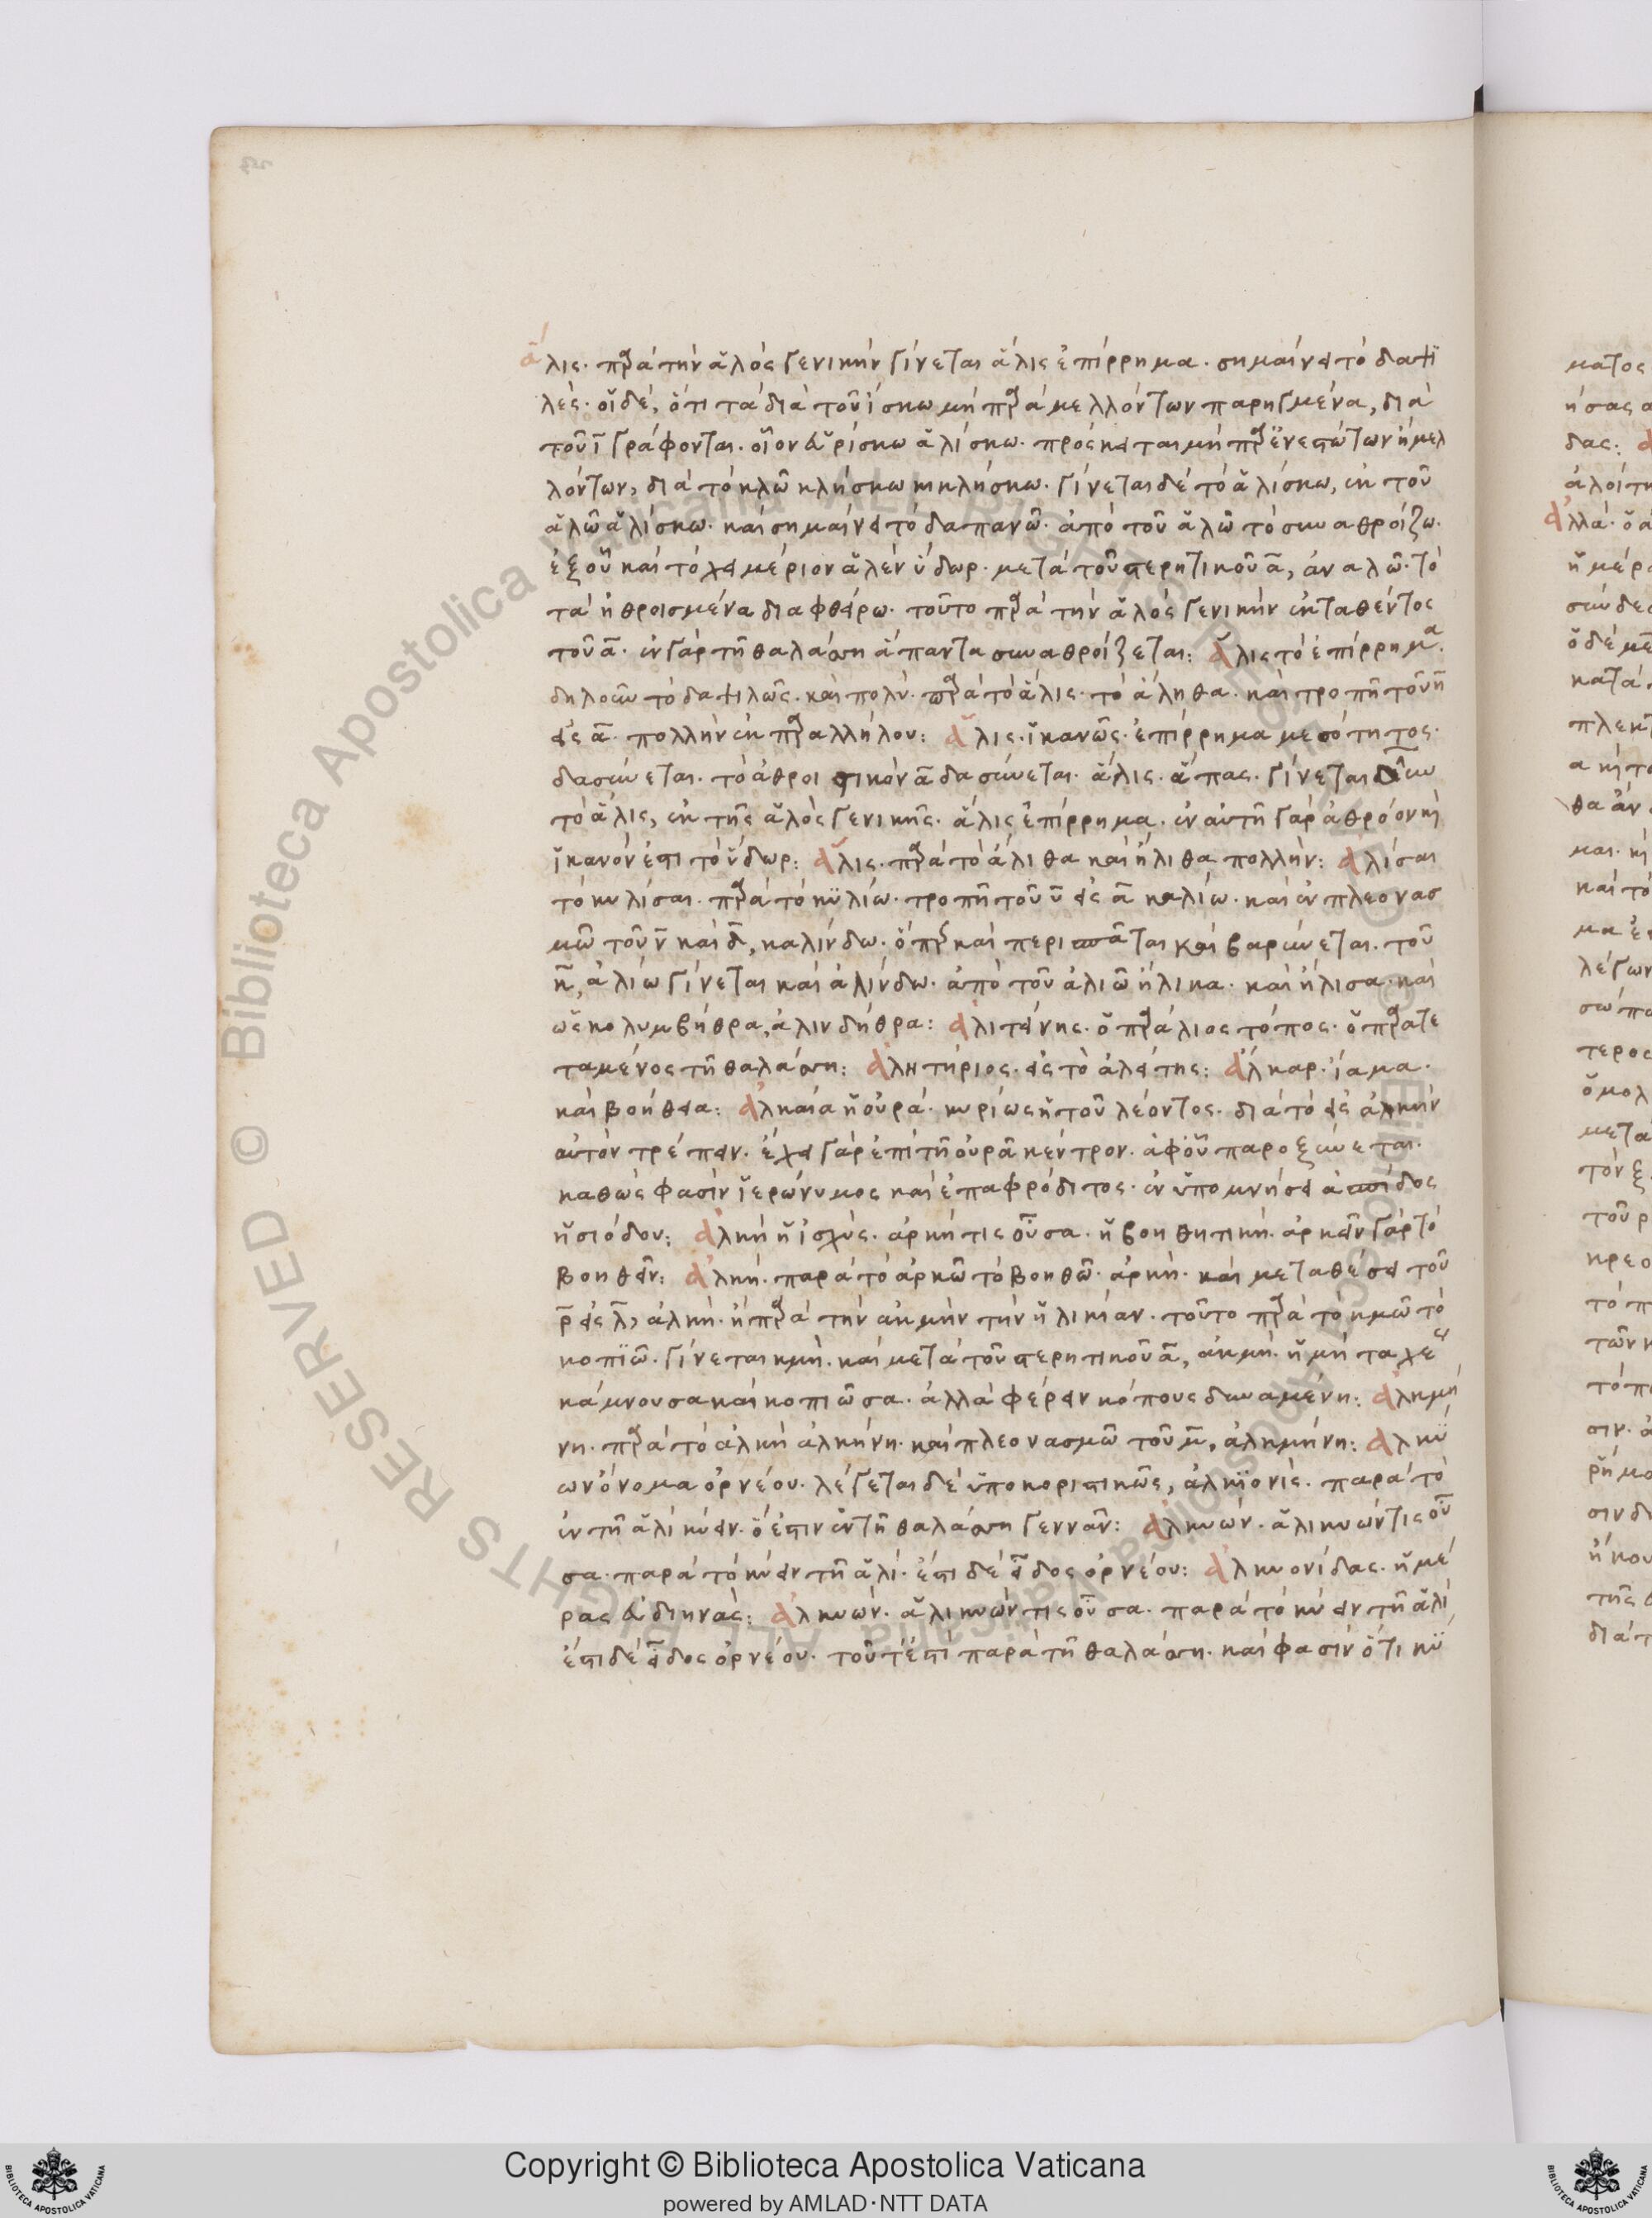 ἅλις· παρὰ τὴν ἁλὸς γενικὴν γίνεται ἅλις ἐπίρρημα· σημαίνει τὸ δαψι
λές· οἱ δὲ, ὅτι τὰ διὰ τοῦ ίσκω μὴ παρὰ μελλόντων παρηγμένα, διὰ
τοῦ ῑ γράφονται· οἷον εὑρίσκω ἁλίσκω· πρόσκειται μὴ παρ' ἐνεστώτων ἢ μελ
λόντων, διὰ τὸ κλῶ κλήσκω κικλήσκω· γίνεται δὲ τὸ ἁλίσκω, ἐκ τοῦ
ἁλῶ ἁλίσκω· καὶ σημαίνει τὸ δαπανῶ· ἀπὸ τοῦ ἁλῶ τὸ συναθροίζω·
ἐξ οὗ καὶ τὸ χειμέριον ἁλὲν ὕδωρ· μετὰ τοῦ στερητικοῦ ᾱ, ἀναλῶ· τὸ
τὰ ἠθροισμένα διαφθείρω· τοῦτο παρὰ τὴν ἁλὸς γενικὴν ἐκταθέντος
τοῦ ᾱ· ἐν γὰρ τῇ θαλάσσῃ ἅπαντα συναθροίζεται: ἅλις τὸ ἐπίρρημα·
δηλοῦν τὸ δαψιλῶς· καὶ πολύ· παρὰ τὸ ἅλις· τὸ ἄληθα· καὶ τροπῇ τοῦ η
εἰς ᾱ· πολλὴν ἐκ παραλλήλου: ἅλις· ἱκανῶς· ἐπίρρημα μεσότητος·
δασύνεται· τὸ ἀθροιστικὸν ᾱ δασύνεται· ἅλις· ἅπας· γίνεται
τὸ ἅλις, ἐκ τῆς ἁλὸς γενικῆς· ἅλις ἐπίρρημα· ἐν αὐτῇ γὰρ ἀθρόον καὶ
ἱκανόν ἐστι τὸ ὕδωρ: ἅλις· παρὰ τὸ ἄλιθα καὶ ἤλιθα πολλήν: ἀλίσαι
τὸ κυλίσαι· παρὰ τὸ κυλίω· τροπῇ τοῦ υ εἰς ᾱ καλίω· καὶ ἐν πλεονασ
μῶ τοῦ ν καὶ δ, καλίνδω· ὅπερ καὶ περισπᾶται καὶ βαρύνεται· τοῦ
κ, ἀλίω γίνεται καὶ ἀλίνδω· ἀπὸ τοῦ ἀλιῶ ἤλικα· καὶ ἤλισα· καὶ
ὡς κολυμβήθρα, ἀλινδήθρα: ἁλιτενής· ὁ παράλιος τόπος· ὁ παρατε
ταμένος τῇ θαλάσσῃ: ἀλητήριος· εἰς τὸ ἀλείτης: ἄλκαρ· ἴαμα·
καὶ βοήθεια: ἀλκαία ἡ οὐρά· κυρίως ἡ τοῦ λέοντος· διὰ τὸ εἰς ἀλκὴν
αὐτὸν τρέπειν· ἔχει γὰρ ἐπὶ τῇ οὐρᾶ κέντρον· ἀφ' οὗ παροξύνεται·
καθώς φασιν ἱερώνυμος καὶ ἐπαφρόδιτος· ἐν ὑπομνήσει ἀσπίδος
ἡσιόδου: ἀλκὴ ἡ ἰσχύς· ἀρκή τις οὖσα· ἡ βοηθητική· ἀρκεῖν γὰρ τὸ
βοηθεῖν: ἀλκή· παρὰ τὸ ἀρκῶ τὸ βοηθῶ· ἀρκή· καὶ μεταθέσει τοῦ
ρ εἰς λ, ἀλκή· ἢ παρὰ τὴν ἀκμὴν τὴν ἡλικίαν· τοῦτο παρὰ τὸ κμῶ τὸ
κοπιῶ· γίνεται κμή· καὶ μετὰ τοῦ στερητικοῦ ᾱ, ἀκμή· ἡ μὴ ταχέως
κάμνουσα καὶ κοπιῶσα· ἀλλὰ φέρειν κόπους δυναμένη: ἀλκμή
νη· παρὰ τὸ ἀλκή ἀλκήνη· καὶ πλεονασμῶ τοῦ μ, ἀλκμήνη: ἀλκυ
ων ὄνομα ὀρνέου· λέγεται δὲ ὑποκοριστικῶς, ἀλκυονίς· παρὰ τὸ
ἐν τῇ ἁλὶ κύειν· ὅ ἐστιν ἐν τῇ θαλάσσῃ γεννᾶν: ἀλκυών· ἁλικυών τις οὖ
σα· παρὰ τὸ κύειν τῇ ἁλί· ἔστι δὲ εἶδος ὀρνέου: ἀλκυονίδας· ἡμέ
ρας εὐδιηνάς: ἀλκυών· ἁλικυών τις οὖσα· παρὰ τὸ κύειν τῇ ἁλί,
ἔστι δὲ εἶδος ὀρνέου· τοῦτ' ἔστι παρὰ τῇ θαλάσσῃ· καὶ φασὶν ὅτι κυ
Copyright © Biblioteca Apostolica Vaticana
powered by AMLAD·NTT DATA